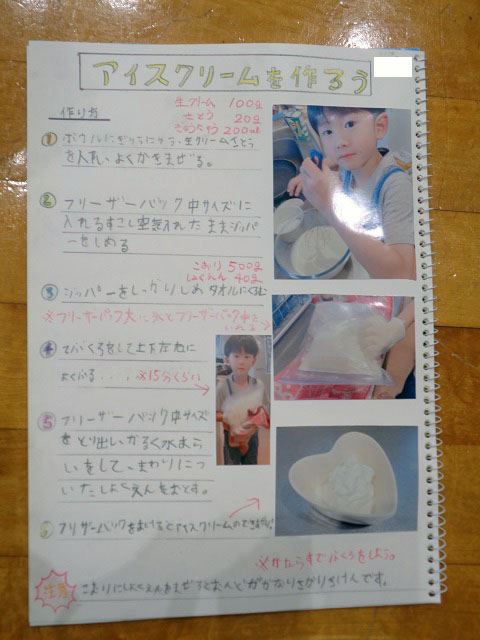 アイスクリームを作ろう
作り方
生クリーム 100g
さとう 20g
ぎゅうにゅう 200ml
① ボウルにぎゅうにゅう、生クリームさとう
を入れ、よくかきまぜる。
② フリーザーバック中サイズに
入れるすこし空気入れたままジッパ
ーをしめる
こおり 500g
しょくえん 40g
③ ジッパーをしっかりしめタオルにくるむ
※フリーザーバック大に氷とフリーザーバック中を
いれる→
④ てぶくろをして上下左右に
よくふる.... ※15分くらい
⑤ フリーザーバック中サイズ
をとり出し、かるく水あら
いをして、まわりについ
いたしょくえんをおとす。
⑥ フリーザーバックをあけるとアイスクリームのできあがり!
※かならずてぶくろをしよう。
注意
こおりにしょくえんをまぜるとおんどがかなりさがりきけんです。